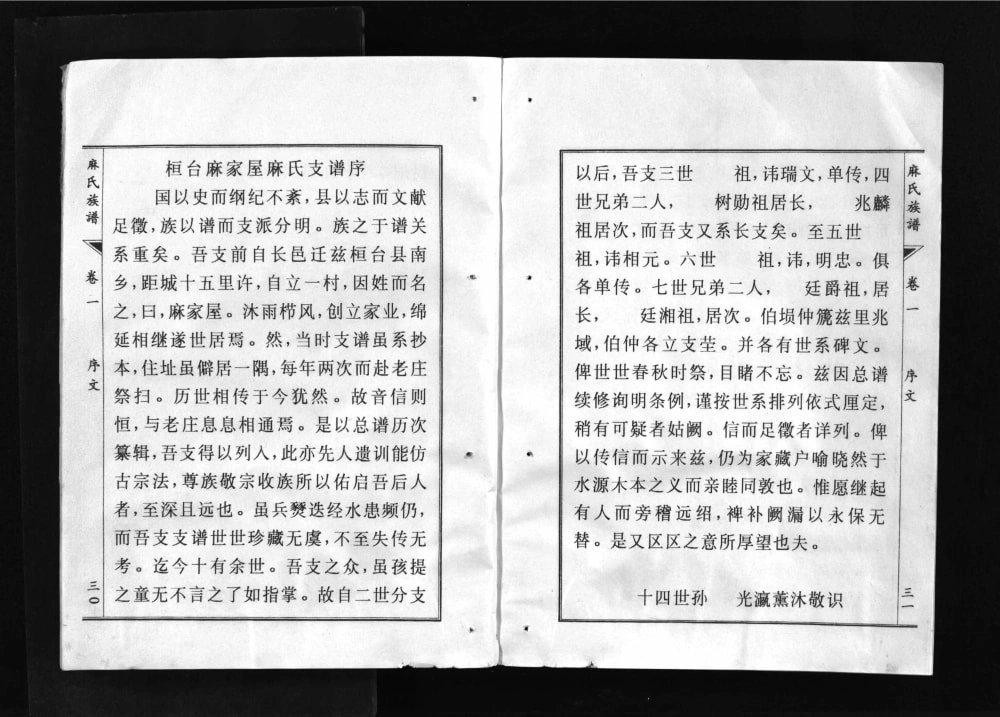 麻氏族譜
卷一
序文
三〇
桓台麻家屋麻氏支谱序
国以史而纲纪不紊,县以志而文献
足徵,族以谱而支派分明。族之于谱关
系重矣。吾支前自长邑迁兹桓台县南
乡,距城十五里许,自立一村,因姓而名
之,曰,麻家屋。沐雨栉风,创立家业,绵
延相继遂世居焉。然,当时支谱虽系抄
本,住址虽僻居一隅,每年两次而赴老庄
祭扫。历世相传于今犹然。故音信则
恒,与老庄息息相通焉。是以总谱历次
纂辑,吾支得以列入,此亦先人遗训能仿
古宗法,尊族敬宗收族所以佑启吾后人
者,至深且远也。虽兵燹迭经水患频仍,
而吾支支谱世世珍藏无虞,不至失传无
考。迄今十有余世。吾支之众,虽孩提
之童无不言之了如指掌。故自二世分支
以后,吾支三世 祖,讳瑞文,单传,四
世兄弟二人, 树勋祖居长, 兆麟
祖居次,而吾支又系长支矣。至五世
祖,讳相元。六世 祖,讳,明忠。俱
各单传。七世兄弟二人, 廷爵祖,居
长, 廷湘祖,居次。伯埙仲篪兹里兆
域,伯仲各立支茔。并各有世系碑文。
俾世世春秋时祭,目睹不忘。兹因总谱
续修询明条例,谨按世系排列依式厘定,
稍有可疑者姑阙。信而足徵者详列。俾
以传信而示来兹,仍为家藏户喻晓然于
水源木本之义而亲睦同敦也。惟愿继起
有人而旁稽远绍,裨补阙漏以永保无
替。是又区区之意所厚望也夫。
十四世孙 光瀛薰沐敬识
麻氏族譜
卷一
序文
三一